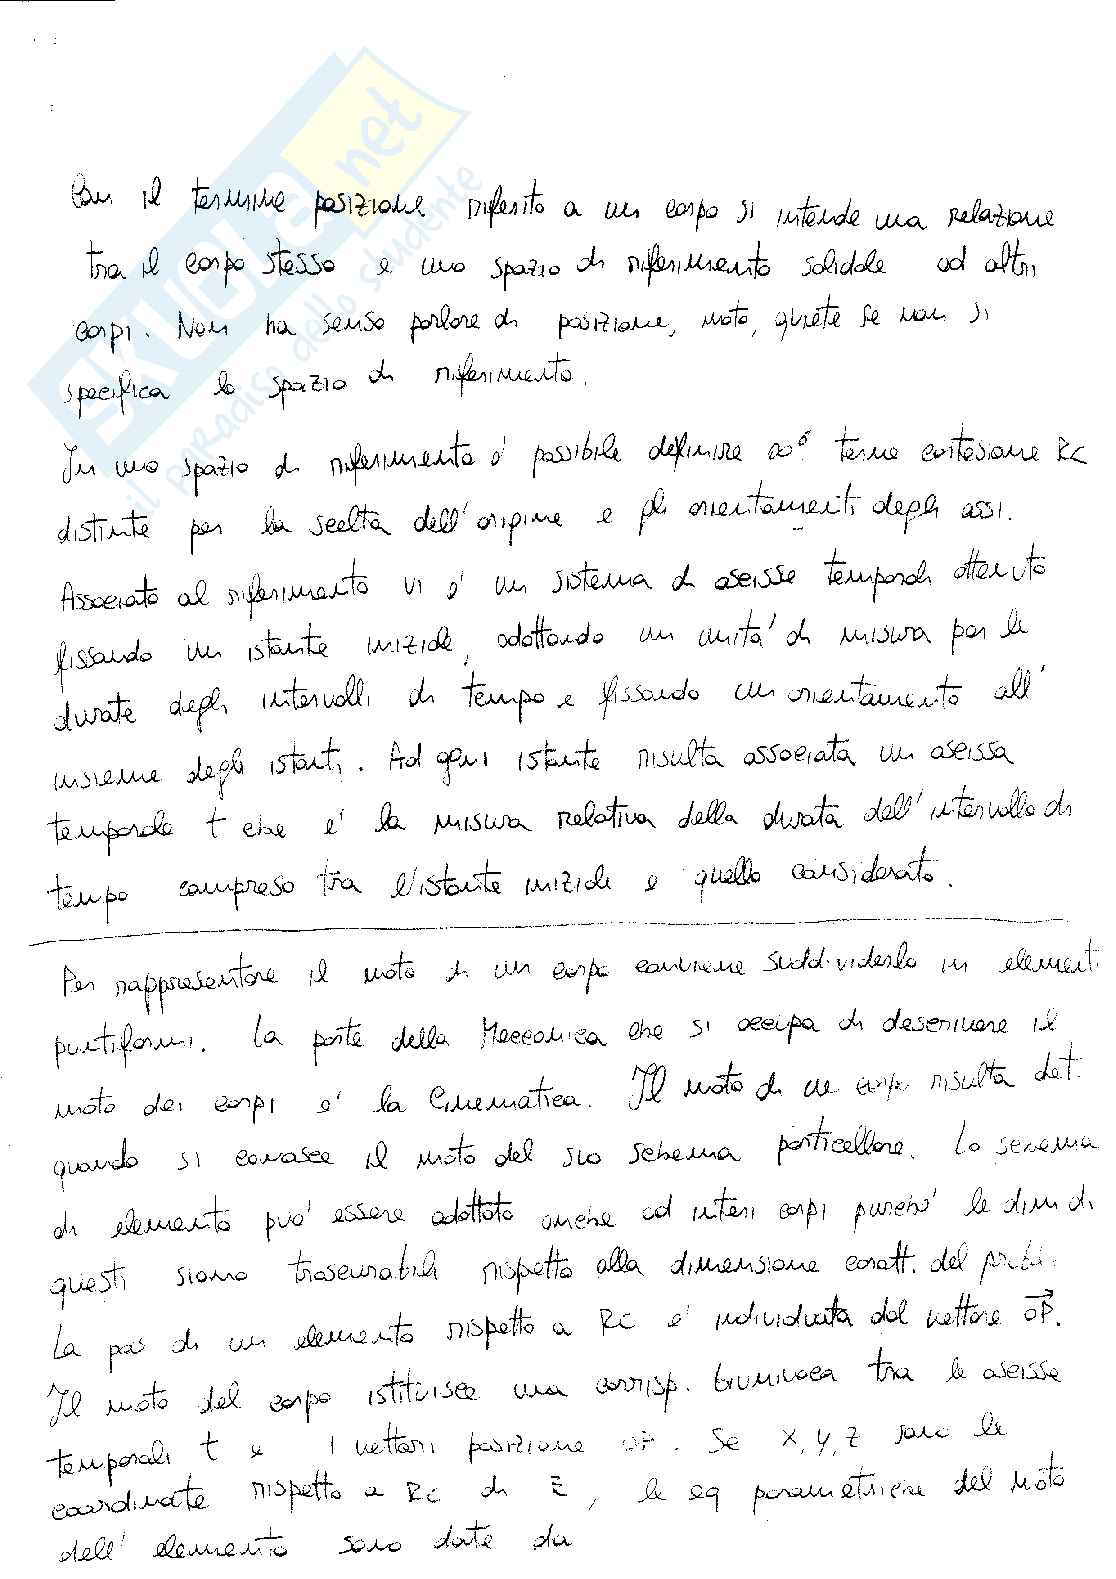 SKUOLA.net
il paradiso dello studente
Con il termine posizione riferito a un corpo si intende una relazione
tra il corpo stesso e uno spazio di riferimento solidale ad altri
corpi. Non ha senso parlare di posizione, moto, quiete se non si
specifica lo spazio di riferimento.
In uno spazio di riferimento è possibile definire ∞ terne cartesiane RC
distinte per la scelta dell'origine e gli orientamenti degli assi.
Associato al riferimento vi è un sistema di ascisse temporali ottenuto
fissando un istante iniziale, adottando un unità di misura per le
durate degli intervalli di tempo e fissando un orientamento all'
insieme degli istanti. Ad ogni istante risulta associata un ascissa
temporale t che è la misura relativa della durata dell'intervallo di
tempo compreso tra l'istante iniziale e quello considerato.
Per rappresentare il moto di un corpo conviene suddividerlo in elementi
puntiformi. La parte della Meccanica che si occupa di descrivere il
moto dei corpi è la Cinematica. Il moto di un corpo risulta det.
quando si conosce il moto del suo schema particellare. Lo schema
di elemento può essere adottato anche ad interi corpi purchè le dim di
questi siano trascurabili rispetto alla dimensione caratt. del probl.
La pos di un elemento rispetto a RC è individuata dal vettore OP.
Il moto del corpo istituisce una corrisp. biunivoca tra le ascisse
temporali t e i vettori posizione OP. Se x, y, z sono le
coordinate rispetto a RC di E, le eq parametriche del moto
dell'elemento sono date da